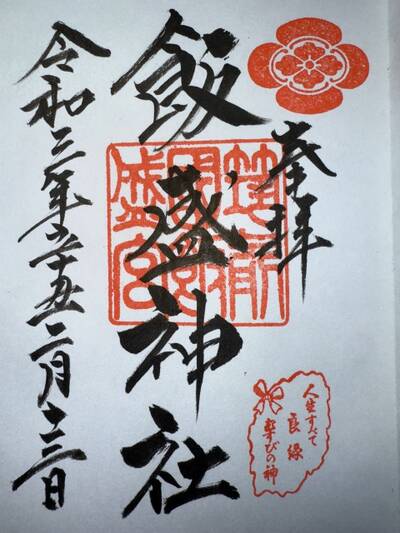 奉拝
飯盛神社
令和三年辛丑二月十三日
筑前
國飯
盛宮
人生すべて
良縁
むすびの神